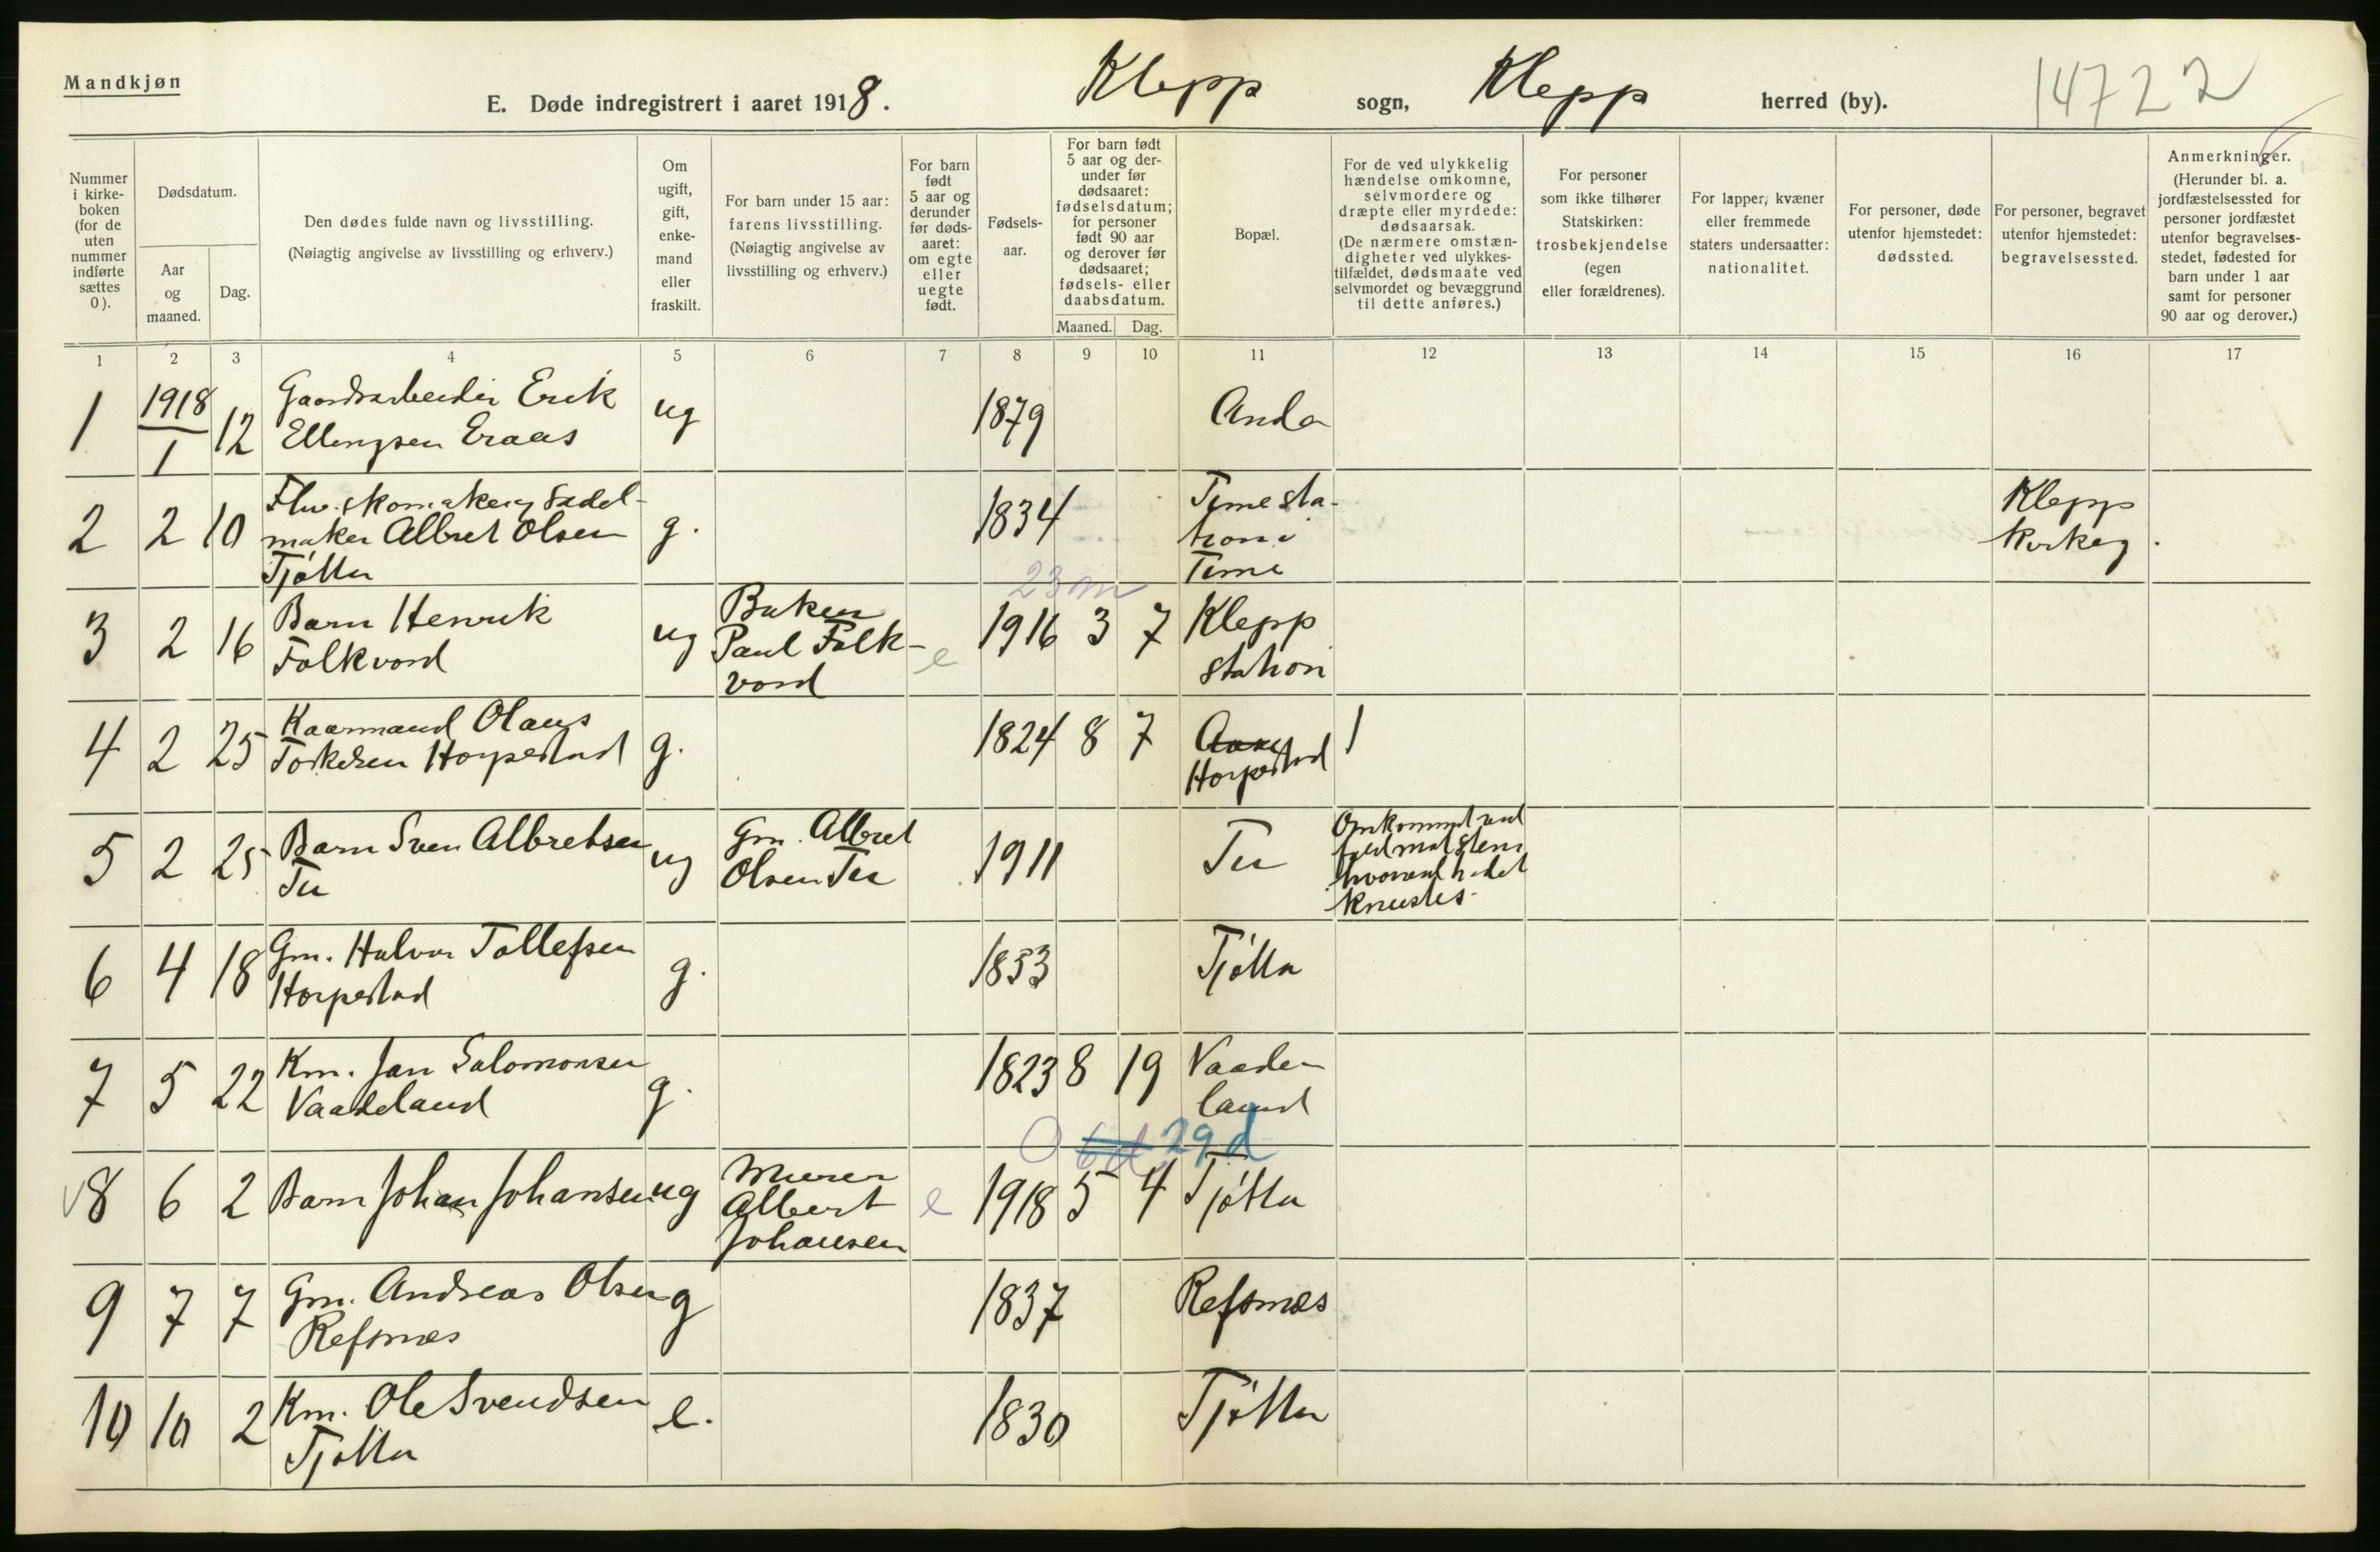 Mandkjøn
E. Døde indregistrert i aaret 1918. Klepp sogn, Klepp herred (by). 14722
Nummer
i kirke-
boken
(for de
uten
nummer
indførte
sættes
0).
Dødsdatum.
Aar
og
maaned.
Dag.
Den dødes fulde navn og livsstilling.
(Nøiagtig angivelse av livsstilling og erhverv.)
Om
ugift,
gift,
enke-
mand
eller
fraskilt.
For barn under 15 aar:
farens livsstilling.
(Nøiagtig angivelse av
livsstilling og erhverv.)
For barn
født
5 aar og
derunder
før døds-
aaret:
om egte
eller
uegte
født.
Fødsels-
aar.
For barn født
5 aar og der-
under før
dødsaaret:
fødselsdatum;
for personer
født 90 aar
og derover før
dødsaaret;
fødsels- eller
daabsdatum.
Maaned.
Dag.
Bopæl.
For de ved ulykkelig
hændelse omkomne,
selvmordere og
dræpte eller myrdede:
dødsaarsak.
(De nærmere omstæn-
digheter ved ulykkes-
tilfældet, dødsmaate ved
selvmordet og bevæggrund
til dette anføres.)
For personer
som ikke tilhører
Statskirken:
trosbekjendelse
(egen
eller forældrenes).
For lapper, kvæner
eller fremmede
staters undersaatter:
nationalitet.
For personer, døde
utenfor hjemstedet:
dødssted.
For personer, begravet
utenfor hjemstedet:
begravelsessted.
Anmerkninger.
(Herunder bl. a.
jordfæstelsessted for
personer jordfæstet
utenfor begravelses-
stedet, fødested for
barn under 1 aar
samt for personer
90 aar og derover.)
1 2 3 4 5 6 7 8 9 10 11 12 13 14 15 16 17
1 1918/1 12 Gaardsarbeider Erik
Ellingsen Eraas
ug 1879 Anda
2 2 10 Fhv. skomaker og Sadel-
maker Albret Olsen
Tjøtta
g. 1834
Time sta-
tion i
Time
Klepp
Kirkeg.
23 m
3 2 16 Barn Henrik
Folkvord
ug
Baker
Paul Folk-
vord
e 1916 3 7
Klepp
station
4 2 25 Kaarmand Olaus
Torkelsen Horpestad
g. 1824 8 7
Horpestad
1
5 2 25 Barn Sven Albretsen
Tu
ug
Gm. Albret
Olsen Tu
1911 Tu
Omkommet ved
fald mot sten
hvorved hodet
knustes.
6 4 18 Gm. Halvor Tollefsen
Horpestad
g. 1853 Tjøtta
7 5 22 Km. Jan Salomonsen
Vaadeland
g. 1823 8 19
Vaade-
land
0 6d 29 d
8 6 2 Barn Johan Johansen ug
Murer
Albert
Johansen
e 1918 5 4 Tjøtta
9 7 7 Gm. Andreas Olsen
Refsnes
g 1837 Refsnæs
10 10 2 Km. Ole Svendsen
Tjøtta
e. 1830 Tjøtta